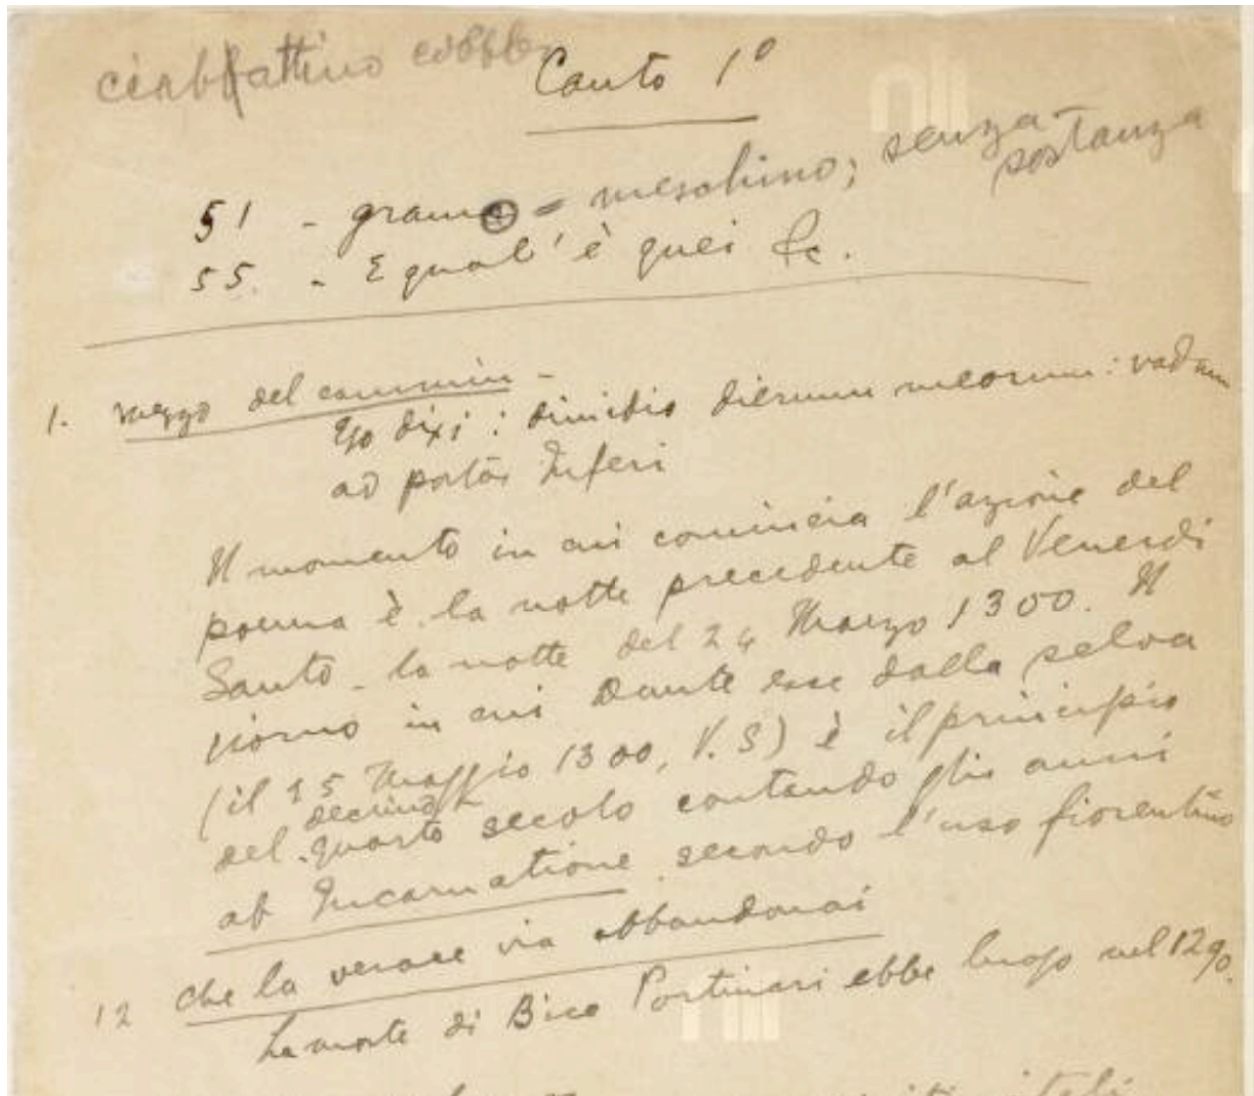 ciabattino cobbler
Canto 1º
51 - gramo = meschino; senza sostanza
55. - E qual' è quei &c.
1. mezzo del cammin -
Ego dixi: dimidio dierum meorum: vadam
ad portas Inferi
Il momento in cui comincia l'azione del
poema è la notte precedente al Venerdì
Santo - la notte del 24 Marzo 1300. Il
giorno in cui Dante esce dalla selva
(il 25 Maggio 1300, V.S) è il principio
del decimo quarto secolo contando gli anni
ab Incarnatione secondo l'uso fiorentino
12 che la verace via abbandonai
La morte di Bice Portinari ebbe luogo nel 1290.